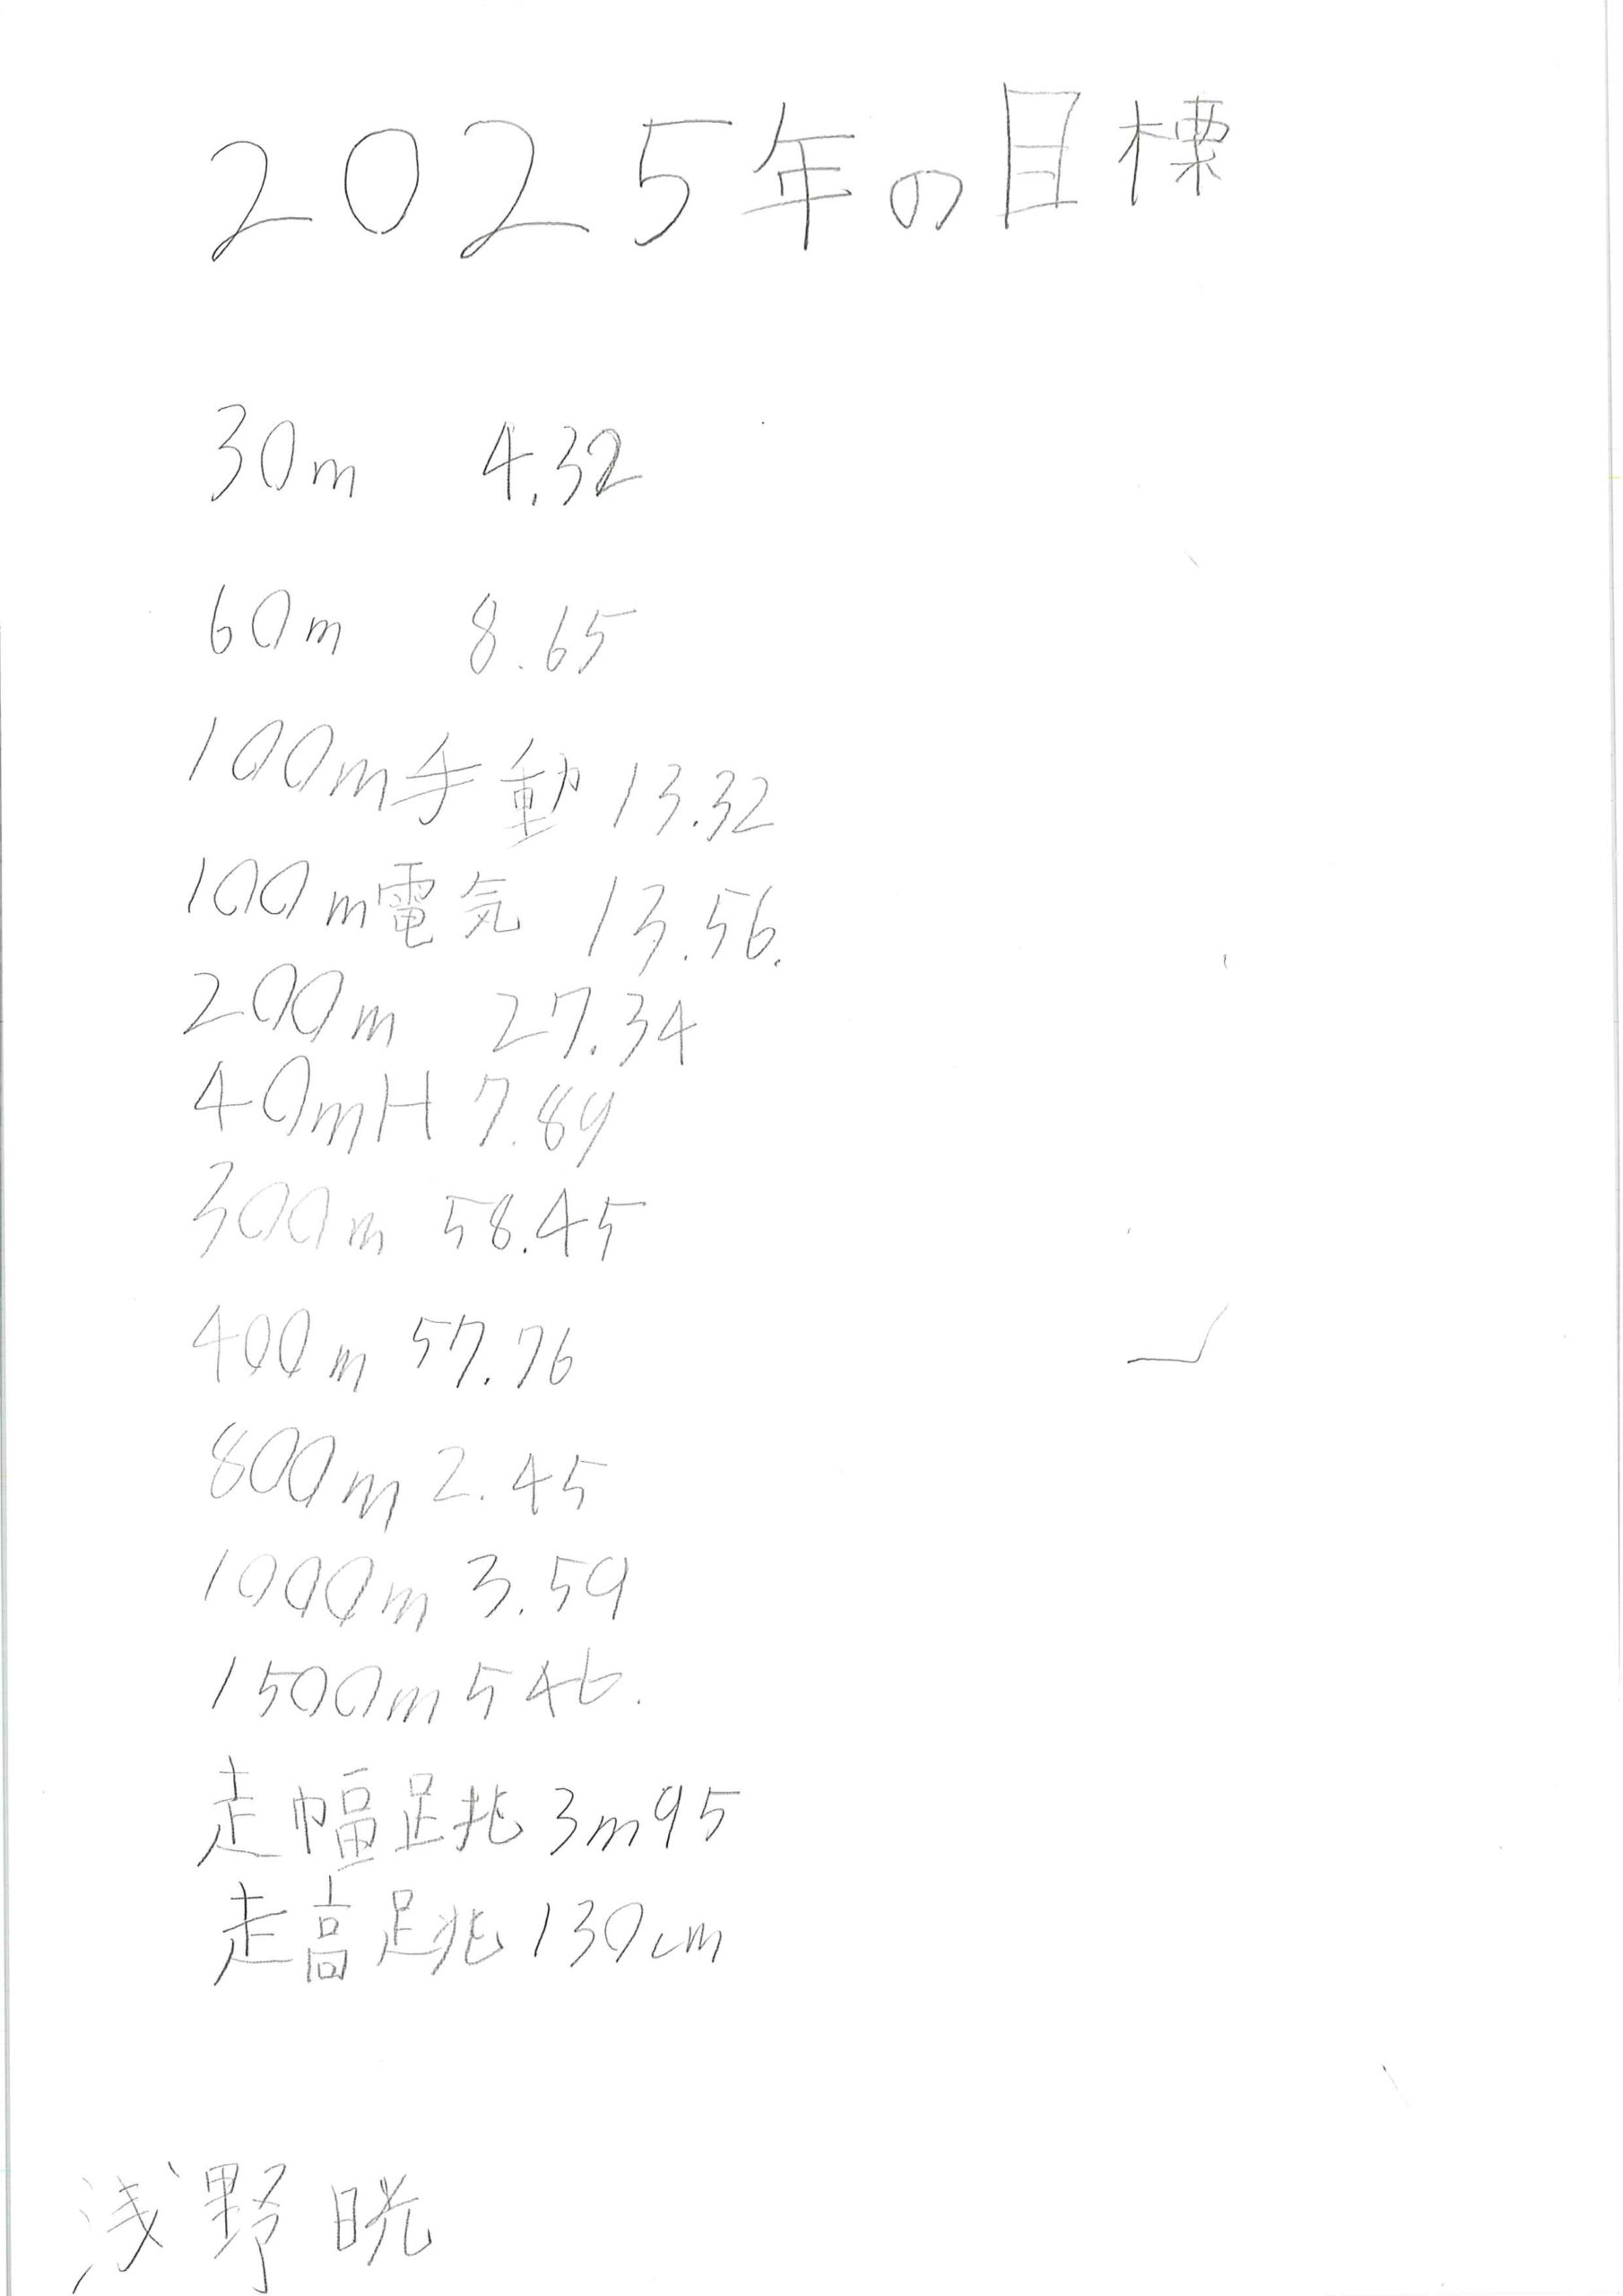 2025年の目標
30m 4.32
60m 8.65
100m手動 13.32
100m電気 13.56.
200m 27.34
40mH 7.89
300m 58.45
400m 57.76
800m 2.45
1000m 3.59
1500m 546.
走幅跳 3m95
走高跳 130cm
浅野 晄